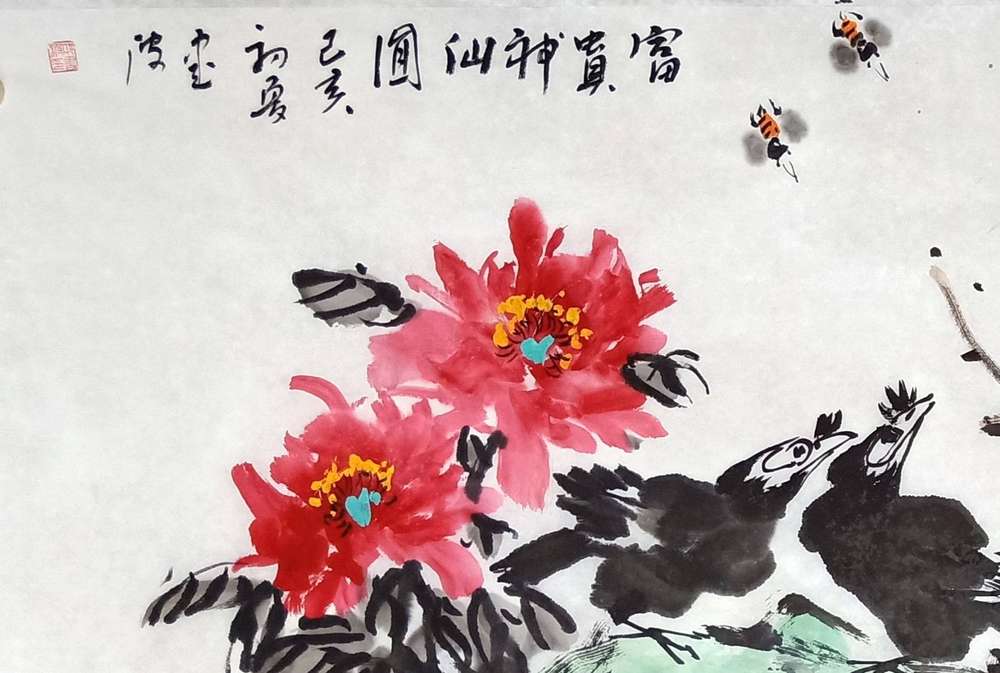 富貴神仙圖
己亥
初夏
波